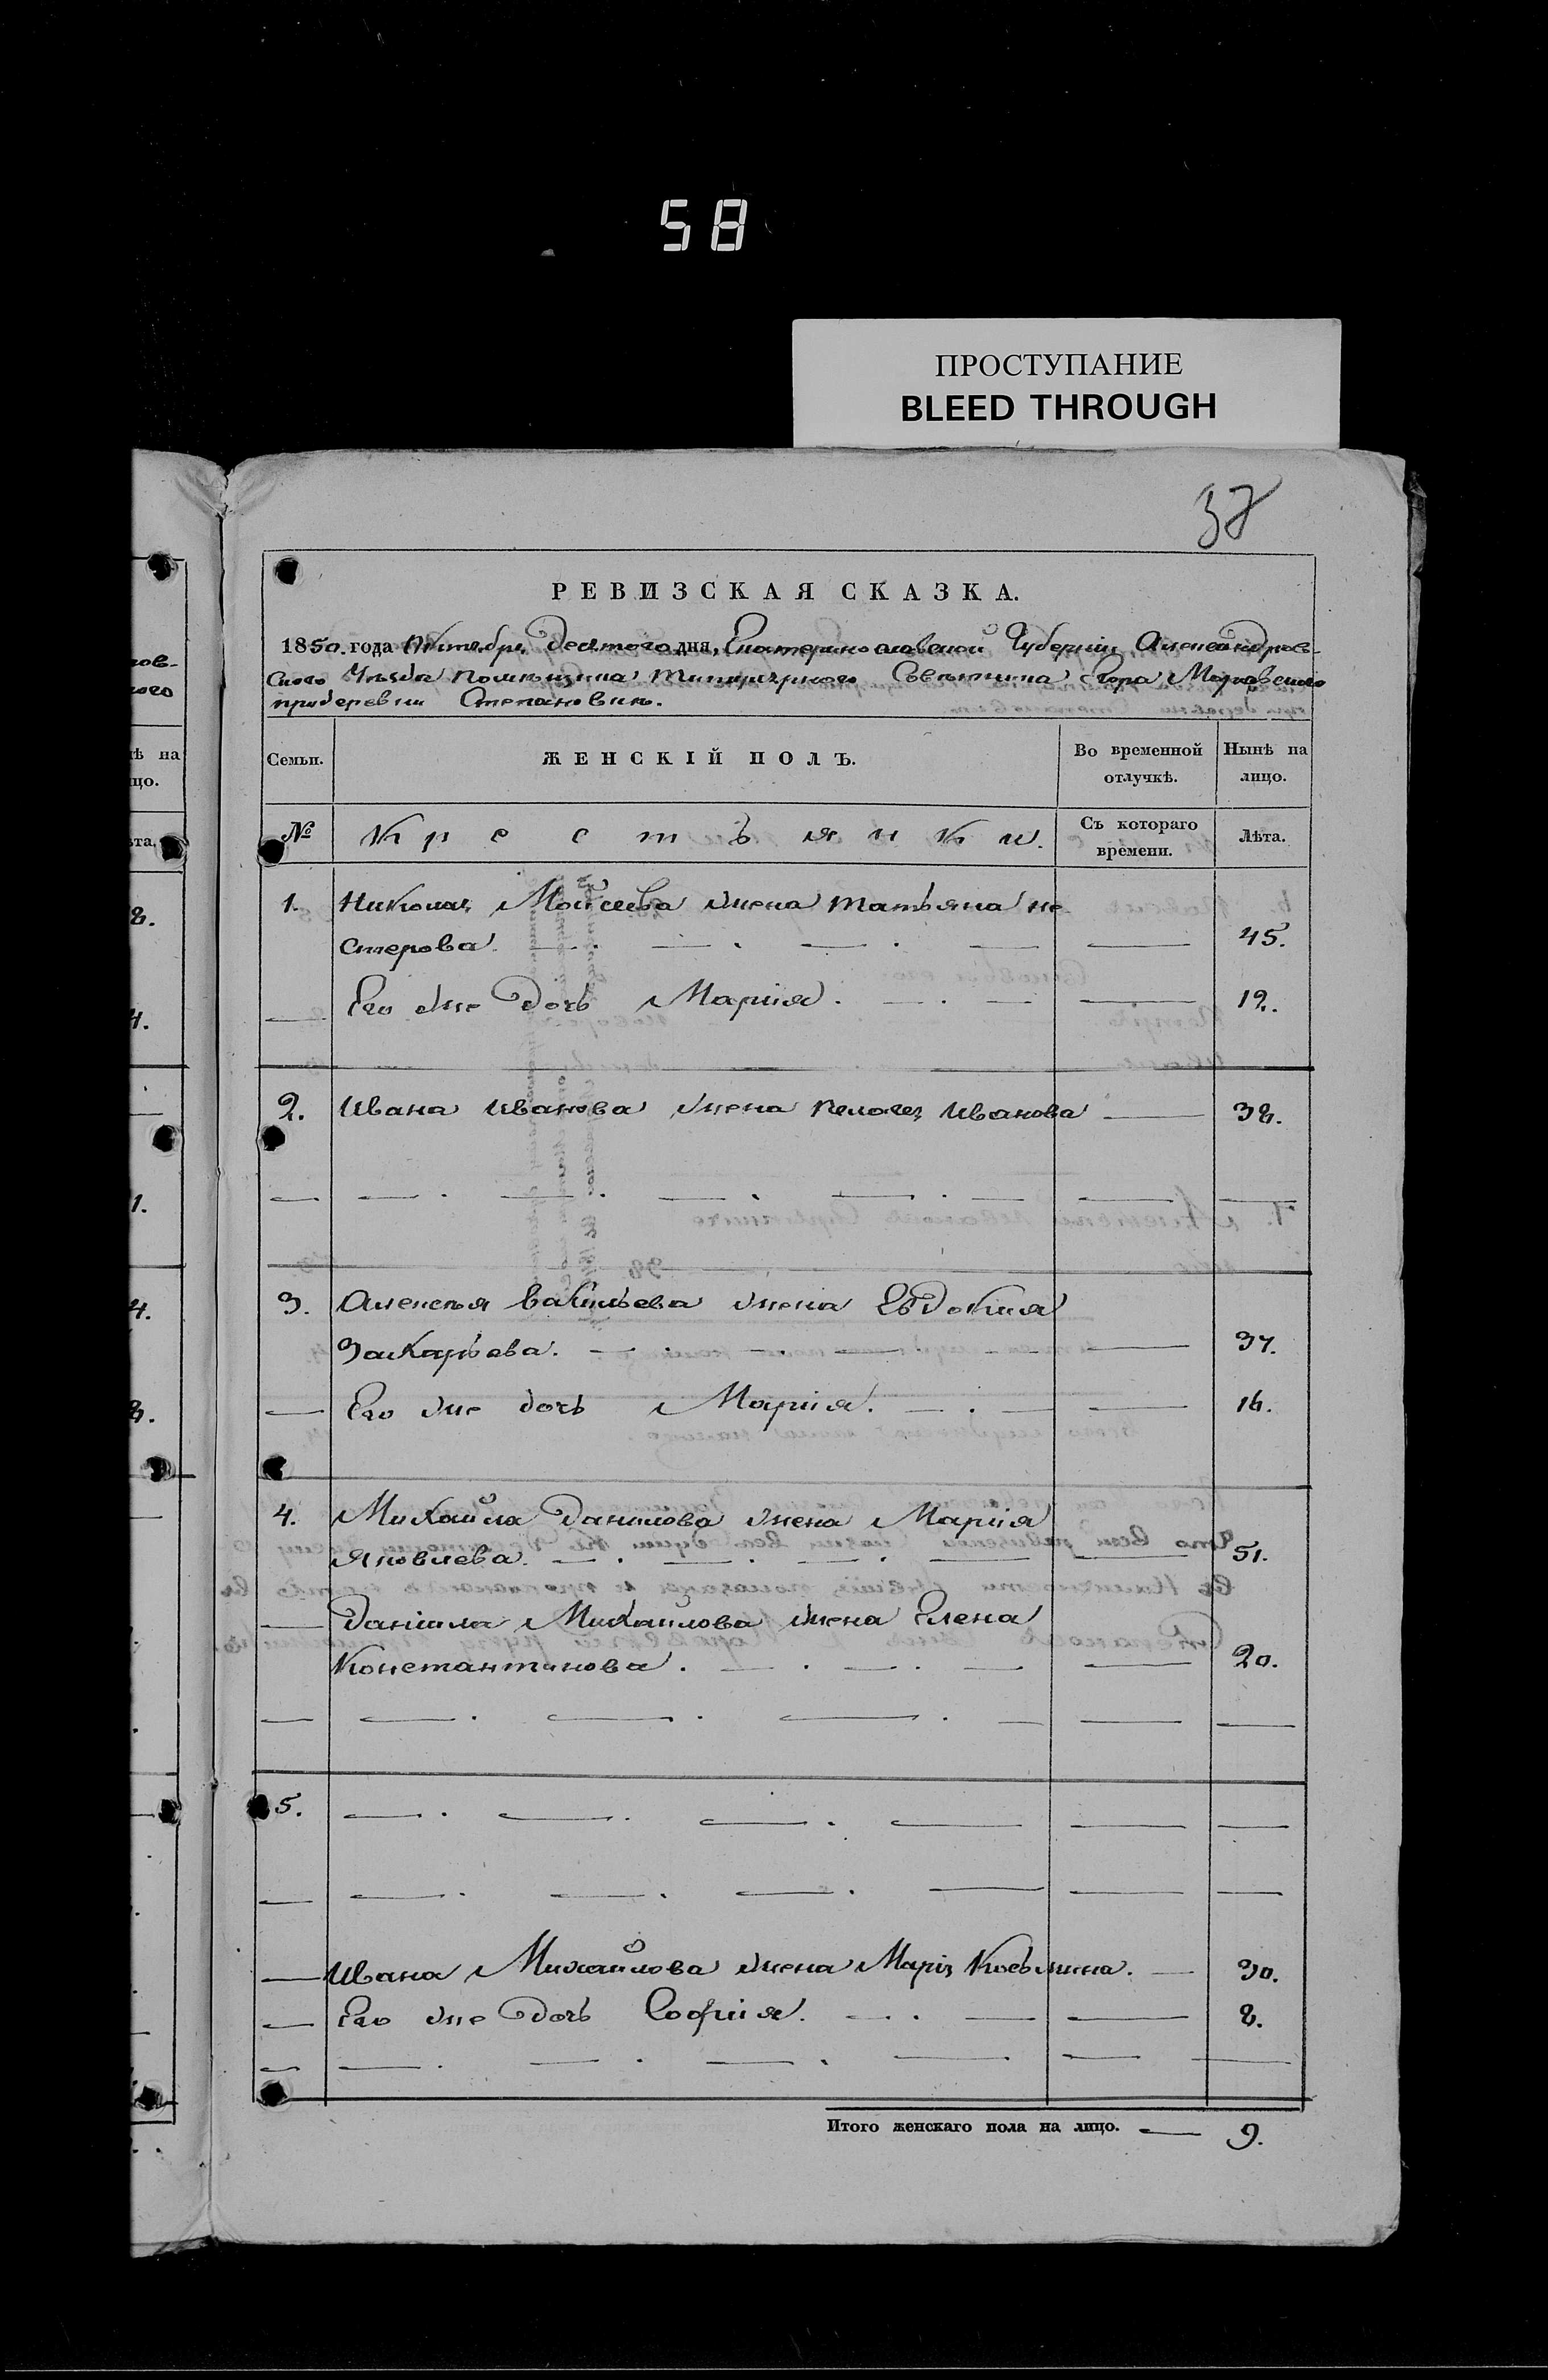 58
ПРОСТУПАНИЕ
BLEED THROUGH
37
РЕВИЗСКАЯ СКАЗКА.
1850. года Октября Десятого дня, Екатеринославской Губерніи Александров-
скаго Уѣзда помѣщика Титулярного Совѣтника Егора
при деревни Степановки.
Семьи.
ЖЕНСКІЙ ПОЛЪ.
Во временной отлучкѣ.
Нынѣ на лицо.
№
Крестьянки.
Съ котораго времени.
Лѣта.
1. Николая Мойсеева жена татьяна не
стерова. 45.
Его же дочь Марія. 12.
2. Ивана Иванова жена пелагея Иванова 38.
3. Алексея васильева жена Евдокия
Захарьева. 37.
Его же дочь Марія. 16.
4. Михайла Данилова жена Марія
Яковлева. 51.
Даніила Михайлова жена Елена
Константинова. 20.
5.
Ивана Михайлова жена Марія Козьмина. 30.
Его же дочь Софія. 8.
Итого женскаго пола на лицо. 9.